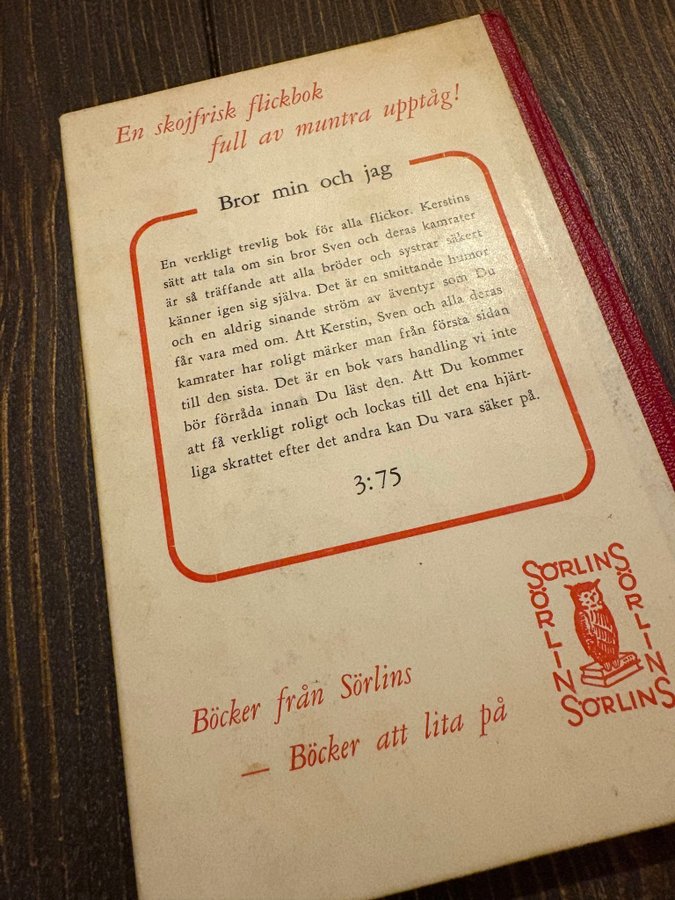 En skojfrisk flickbok
full av muntra upptåg!
Bror min och jag
En verkligt trevlig bok för alla flickor. Kerstins
sätt att tala om sin bror Sven och deras kamrater
är så träffande att alla bröder och systrar säkert
känner igen sig själva. Det är en smittande humor
och en aldrig sinande ström av äventyr som Du
får vara med om. Att Kerstin, Sven och alla deras
kamrater har roligt märker man från första sidan
till den sista. Det är en bok vars handling vi inte
bör förråda innan Du läst den. Att Du kommer
att få verkligt roligt och lockas till det ena hjärt-
liga skrattet efter det andra kan Du vara säker på.
3:75
SÖRLINS
SÖRLINS
SÖRLINS
SÖRLINS
Böcker från Sörlins
— Böcker att lita på